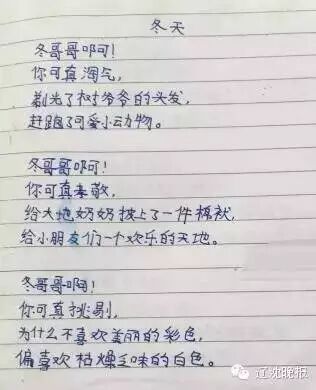 冬天
冬哥哥啊可!
你可真淘气,
剃光了树爷爷的头发,
赶跑了可爱小动物。
冬哥哥啊可!
你可真孝敬,
给大地奶奶披上了一件棉袄,
给小朋友们一个欢乐的天地。
冬哥哥啊!
你可真挑剔,
为什么不喜欢美丽的彩色,
偏喜欢枯燥乏味的白色。
辽沈晚报